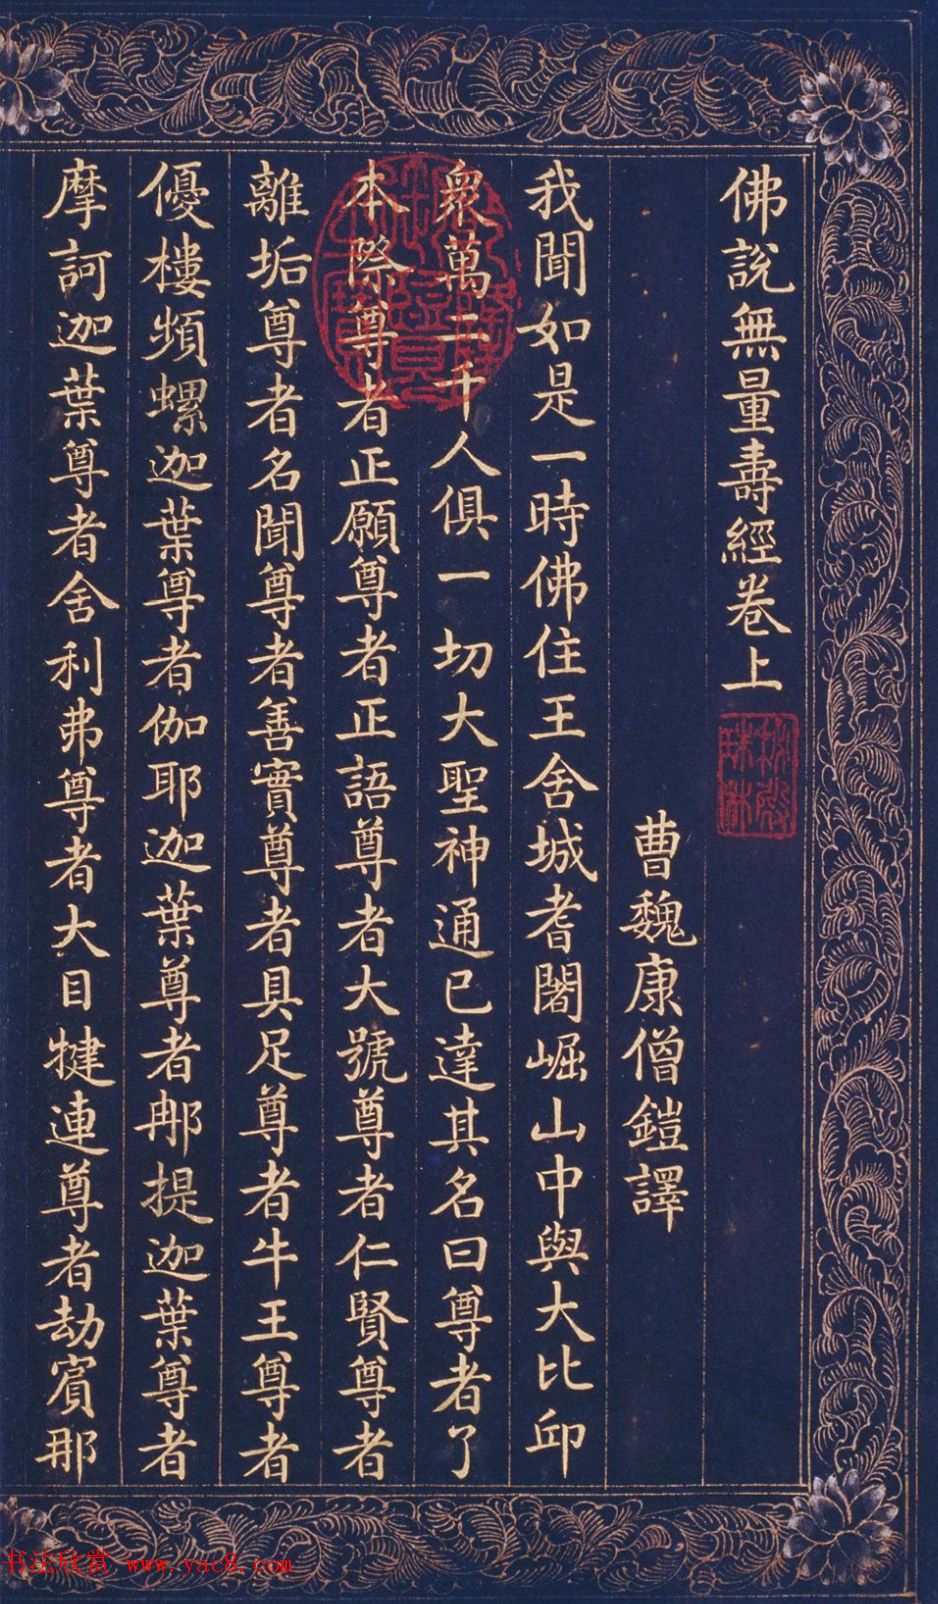 佛說無量壽經卷上
曹魏康僧鎧譯
我聞如是一時佛住王舍城耆闍崛山中與大比邱
衆萬二千人俱一切大聖神通已達其名曰尊者了
本際尊者正願尊者正語尊者大號尊者仁賢尊者
離垢尊者名聞尊者善實尊者具足尊者牛王尊者
優樓頻螺迦葉尊者伽耶迦葉尊者那提迦葉尊者
摩訶迦葉尊者舍利弗尊者大目揵連尊者劫賓那
书法欣赏 www.yac8.com